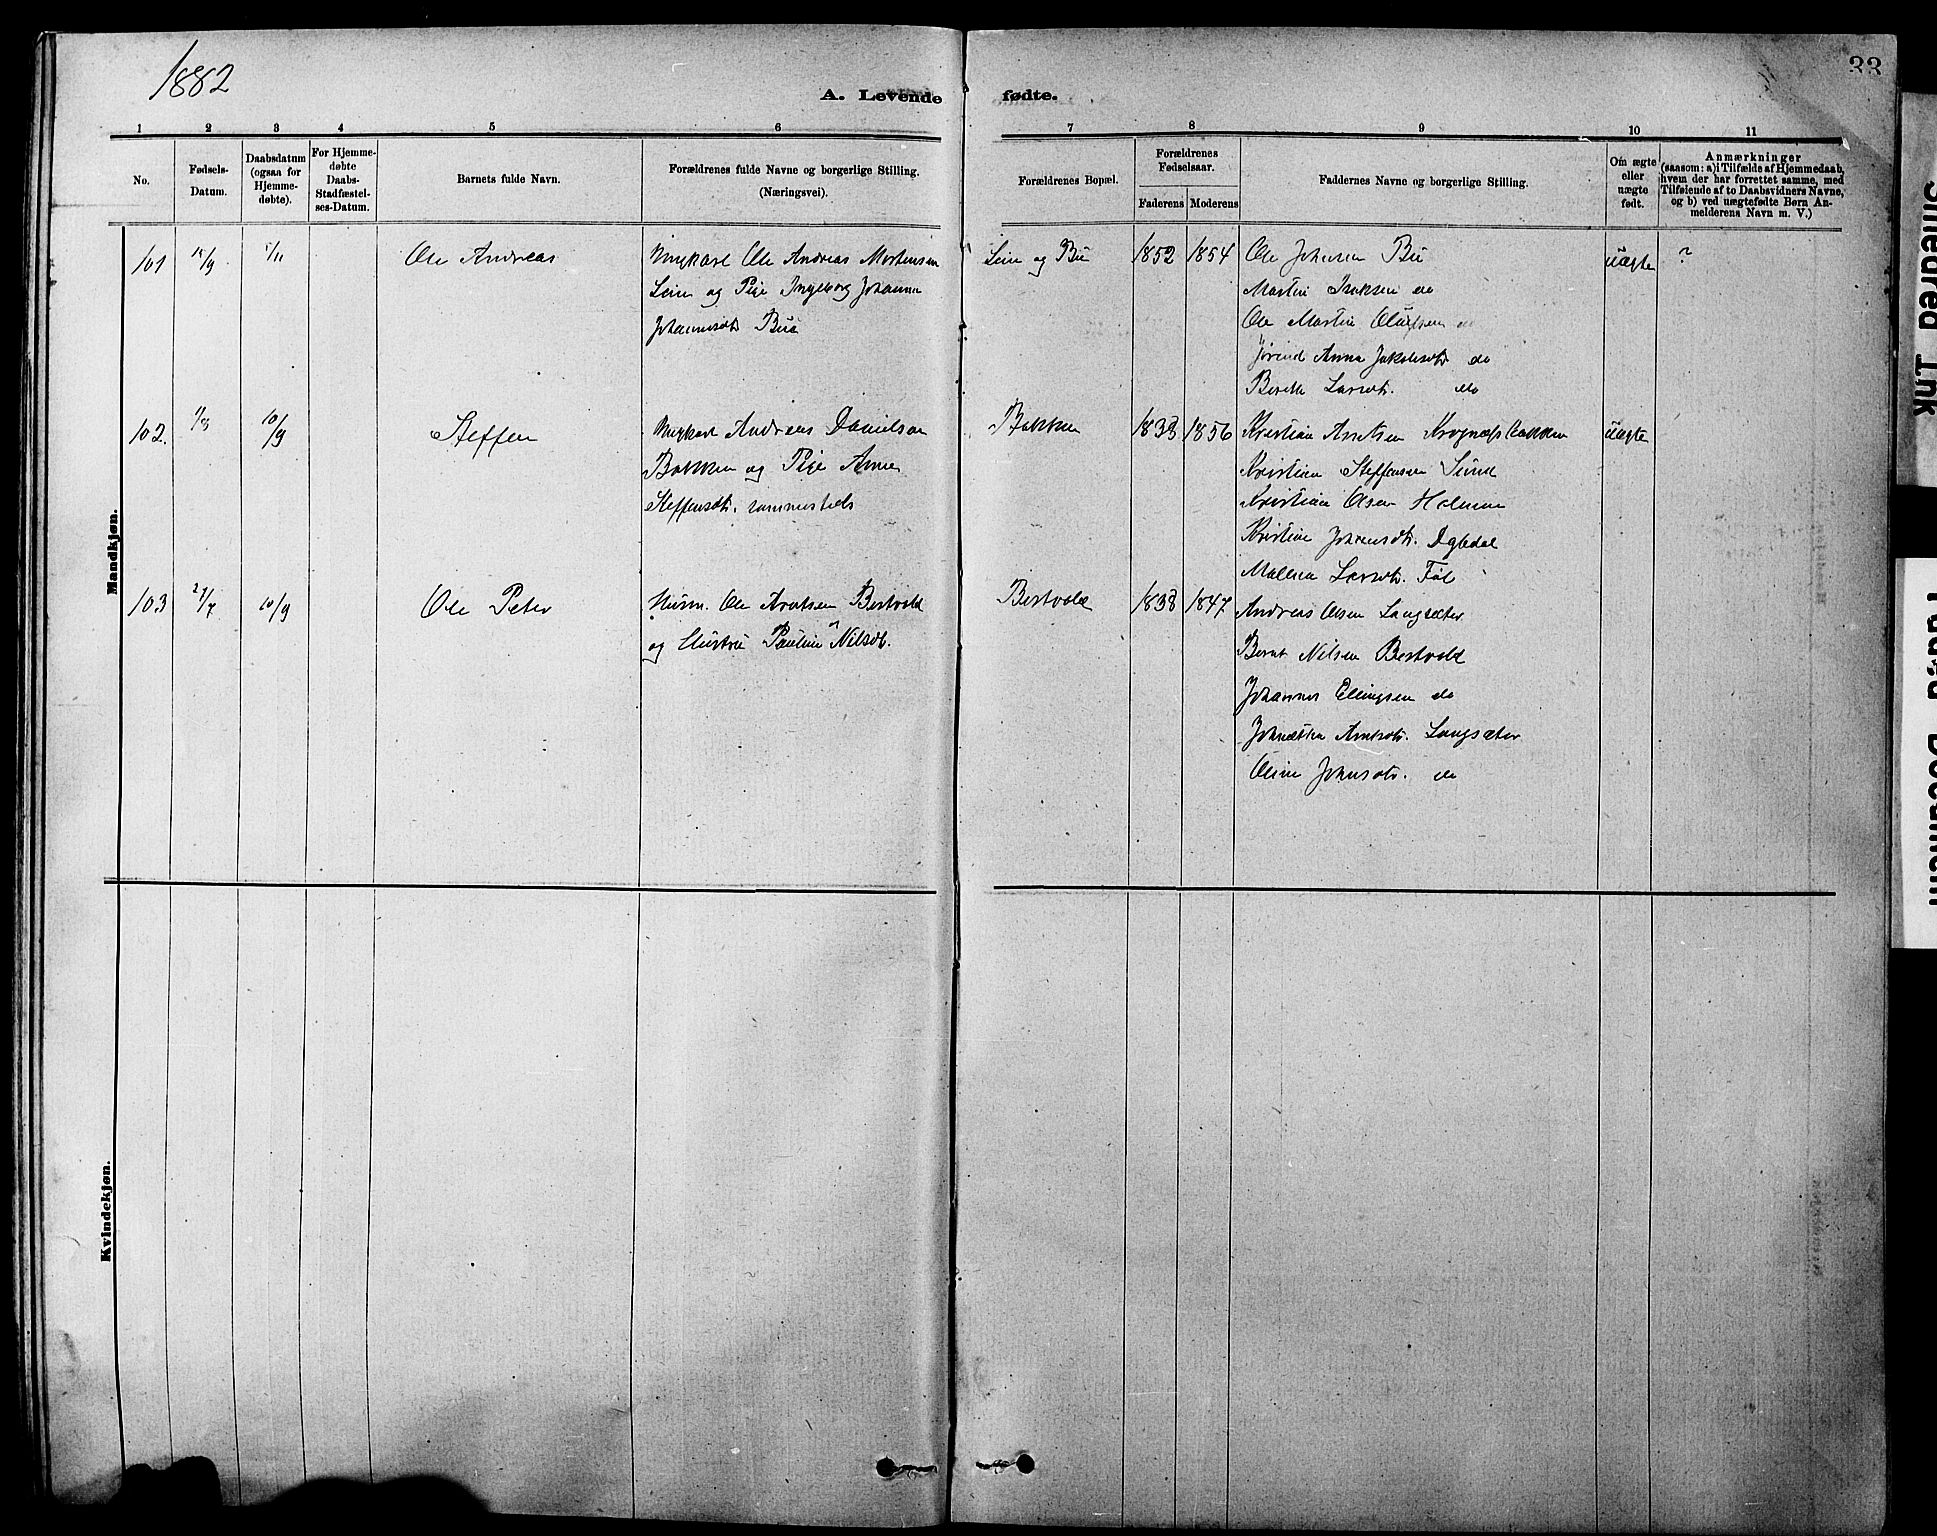 1882
33
A. Levende fødte.
1 2 3 4 5 6 7 8 9 10 11
No.
Fødsels-
Datum.
Daabsdatum
(ogsaa for
Hjemme-
døbte).
For Hjemme-
døbte
Daabs-
Stadfæstel-
ses-Datum.
Barnets fulde Navn.
Forældrenes fulde Navne og borgerlige Stilling.
(Næringsvei).
Forældrenes Bopæl.
Forældrenes
Fødselsaar.
Faderens Moderens
Faddernes Navne og borgerlige Stilling.
Om ægte
eller
uægte
født.
Anmærkninger
(saasom: a) i Tilfælde af Hjemmedaab,
hvem der har forrettet samme, med
Tilføiende af to Daabsvidners Navne,
og b) ved uægtefødte Børn An-
melderens Navn m. V.)
Mandkjøn.
101 15/9 5/11 Ole Andreas
Ungkarl Ole Andreas Mortensen
Lein og Pige Ingeborg Johanna
Johannesdtr. Bue
Lein og Bu 1852 1854
Ole Johnsen Bu
Martin Isaksen do
Ole Martin Olufsen do
Jørind Anna Jakobsdtr do
Bereth Larsdtr. do
uægte ?
102. 1/8 10/9 Steffen
Ungkarl Andreas Danielsen
Bakken og Pige Anne
Steffensdtr. sammesteds
Bakken 1833 1856
Kristian Arntsen
Kristian Steffensen Sund
Kristian Olsen Holmen
Kristine Johansdtr.
Larsdtr.
uægte
103 27/7 10/9 Ole Peter
Husm. Ole Arntsen Bestvold
og Hustru Pauline Nilsdt.
Bestvold 1838 1847
Andreas Olsen Langsæter
Bernt Nilsen Bestvold
Johannes Ellingsen do
Arntsdtr. Langsæter
Oline Johnsdtr. do
Kvindekjøn.
Smeared Ink
Faded Document